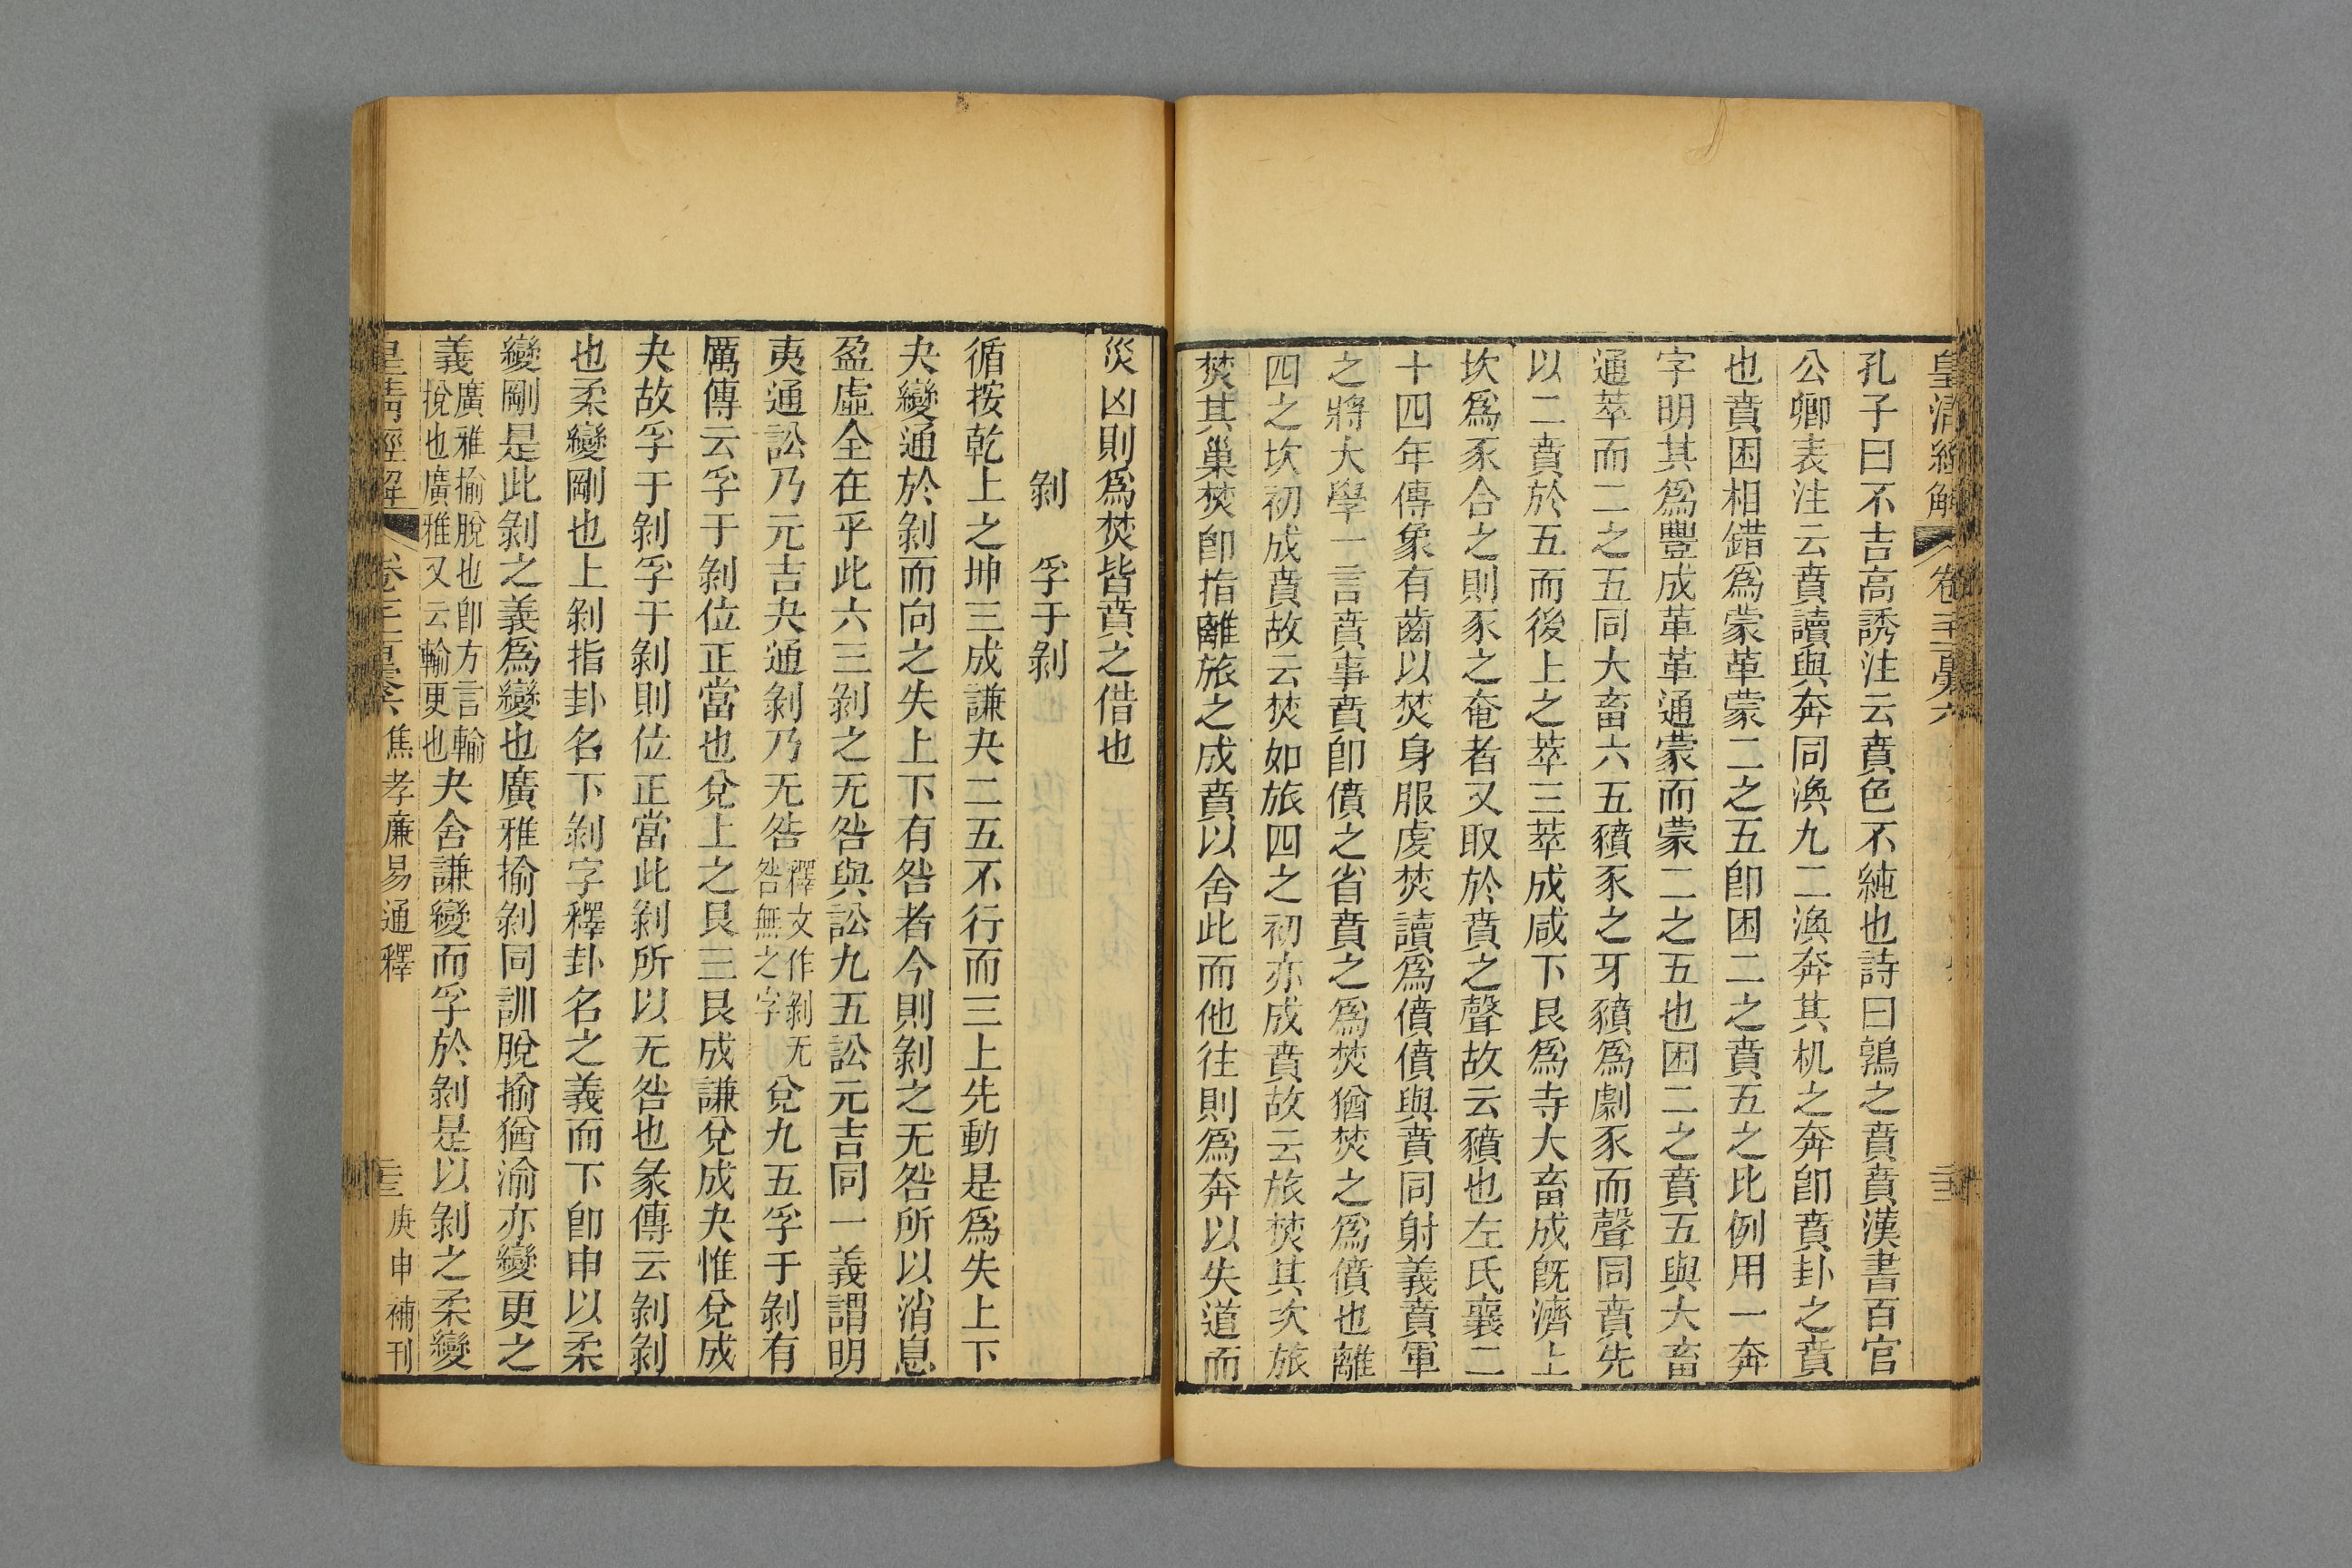 皇清經解 卷
孔子曰不吉高誘注云賁色不純也詩曰鶉之賁賁漢書百官
公卿表注云賁讀與奔同渙九二渙奔其机之奔卽賁卦之賁
也賁困相錯爲蒙革蒙二之五卽困二之賁五之比例用一奔
字明其爲豐成革革通蒙而蒙二之五也困二之賁五與大畜
通萃而二之五同大畜六五豶豕之牙豶爲劇豕而聲同賁先
以二賁於五而後上之萃三萃成咸下艮爲寺大畜成旣濟上
坎爲豕合之則豕之奄者又取於賁之聲故云豶也左氏襄二
十四年傳象有齒以焚身服虔焚讀爲僨僨與賁同射義賁軍
之將大學一言賁事賁卽僨之省賁之爲焚猶焚之爲僨也離
四之坎初成賁故云焚如旅四之初亦成賁故云旅焚其次旅
焚其巢焚卽指離旅之成賁以舍此而他往則爲奔以失道而
災凶則爲焚皆賁之借也
剝 孚于剝
循按乾上之坤三成謙夬二五不行而三上先動是爲失上下
夬變通於剝而向之失上下有咎者今則剝之无咎所以消息
盈虛全在乎此六三剝之无咎與訟九五訟元吉同一義謂明
夷通訟乃元吉夬通剝乃无咎釋文作剝无咎無之字兌九五孚于剝有
厲傳云孚于剝位正當也兌上之艮三艮成謙兌成夬惟兌成
夬故孚于剝孚于剝則位正當此剝所以无咎也彖傳云剝剝
也柔變剛也上剝指卦名下剝字釋卦名之義而下卽申以柔
變剛是此剝之義爲變也廣雅揄剝同訓脫揄猶渝亦變更之
義廣雅揄脫也卽方言輸捝也廣雅又云輸更也夬舍謙變而孚於剝是以剝之柔變
皇清經解 卷 焦孝廉易通釋 庚申補刊